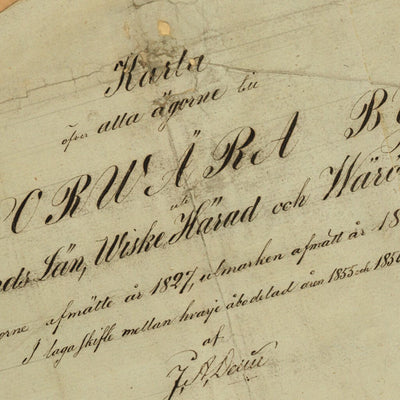 Karta
öfver alla ägorne till
ORWÄRA B
nds Län, Wiske Härad och Wärö
orne afmätte år 1827, utmarken afmätt år 18
I laga skifte mellan hvarje åbo delad åren 1855 och 1856
af